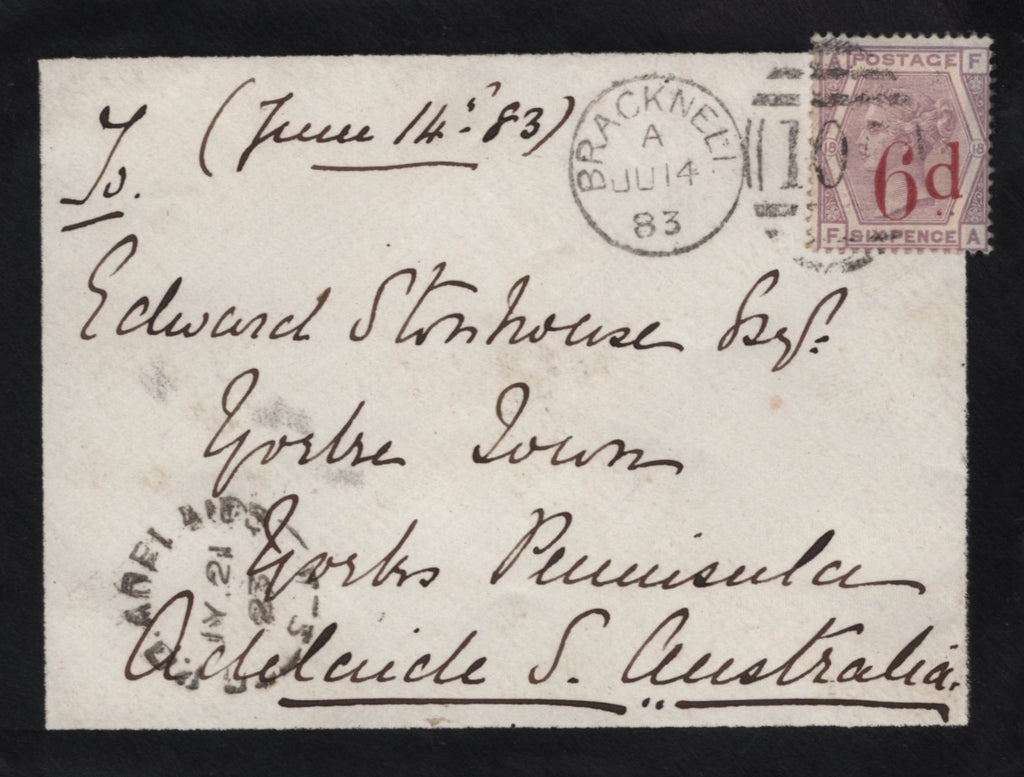 To. (June 14th 83)
BRACKNELL
A
JU 14
83
A POSTAGE F
18 18
6d
F SIXPENCE A
Edward Stonhouse Esqr.
Yorke Town
Yorks Peninsula
Adelaide S. Australia.
ADELAIDE
JY 21